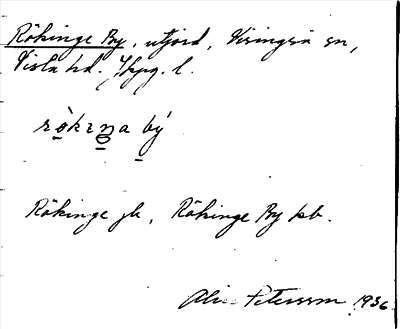 Rökinge By, utjord, Visingsö sn,
Vista hd. Jkpg. l.
rö̀kɪŋa bý
Rökinge jb, Rökinge By kb.
Petersson 1936